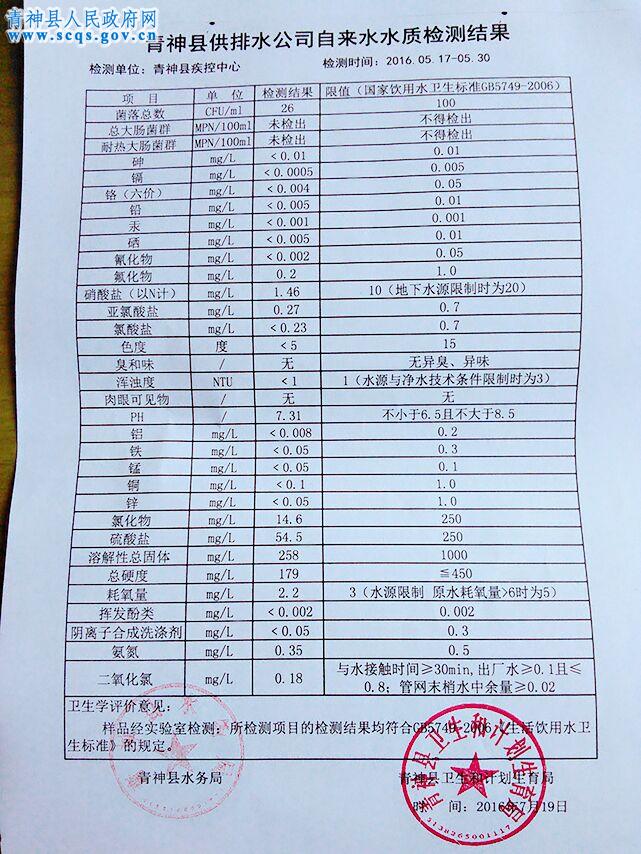 青神县人民政府网
www.scqs.gov.cn
青神县供排水公司自来水水质检测结果
检测单位：青神县疾控中心 检测时间：2016.05.17-05.30
项 目 单 位 检测结果 限值（国家饮用水卫生标准GB5749-2006）
菌落总数 CFU/ml 26 100
总大肠菌群 MPN/100ml 未检出 不得检出
耐热大肠菌群 MPN/100ml 未检出 不得检出
砷 mg/L <0.01 0.01
镉 mg/L <0.0005 0.005
铬（六价） mg/L <0.004 0.05
铅 mg/L <0.005 0.01
汞 mg/L <0.001 0.001
硒 mg/L <0.005 0.01
氰化物 mg/L <0.002 0.05
氟化物 mg/L 0.2 1.0
硝酸盐（以N计） mg/L 1.46 10（地下水源限制时为20）
亚氯酸盐 mg/L 0.27 0.7
氯酸盐 mg/L <0.23 0.7
色度 度 <5 15
臭和味 / 无 无异臭、异味
浑浊度 NTU <1 1（水源与净水技术条件限制时为3）
肉眼可见物 / 无 无
PH / 7.31 不小于6.5且不大于8.5
铝 mg/L <0.008 0.2
铁 mg/L <0.05 0.3
锰 mg/L <0.05 0.1
铜 mg/L <0.1 1.0
锌 mg/L <0.05 1.0
氯化物 mg/L 14.6 250
硫酸盐 mg/L 54.5 250
溶解性总固体 mg/L 258 1000
总硬度 mg/L 179 ≦450
耗氧量 mg/L 2.2 3（水源限制 原水耗氧量>6时为5）
挥发酚类 mg/L <0.002 0.002
阴离子合成洗涤剂 mg/L <0.05 0.3
氨氮 mg/L 0.35 0.5
二氧化氯 mg/L 0.18 与水接触时间≥30min,出厂水≥0.1且≤
0.8；管网末梢水中余量≥0.02
卫生学评价意见：
样品经实验室检测：所检测项目的检测结果均符合GB5749-2006《生活饮用水卫
生标准》的规定。
青神县水务局 青神县卫生和计划生育局
时 间：2016年7月19日
青神县卫生和计划生育局
5138265001117